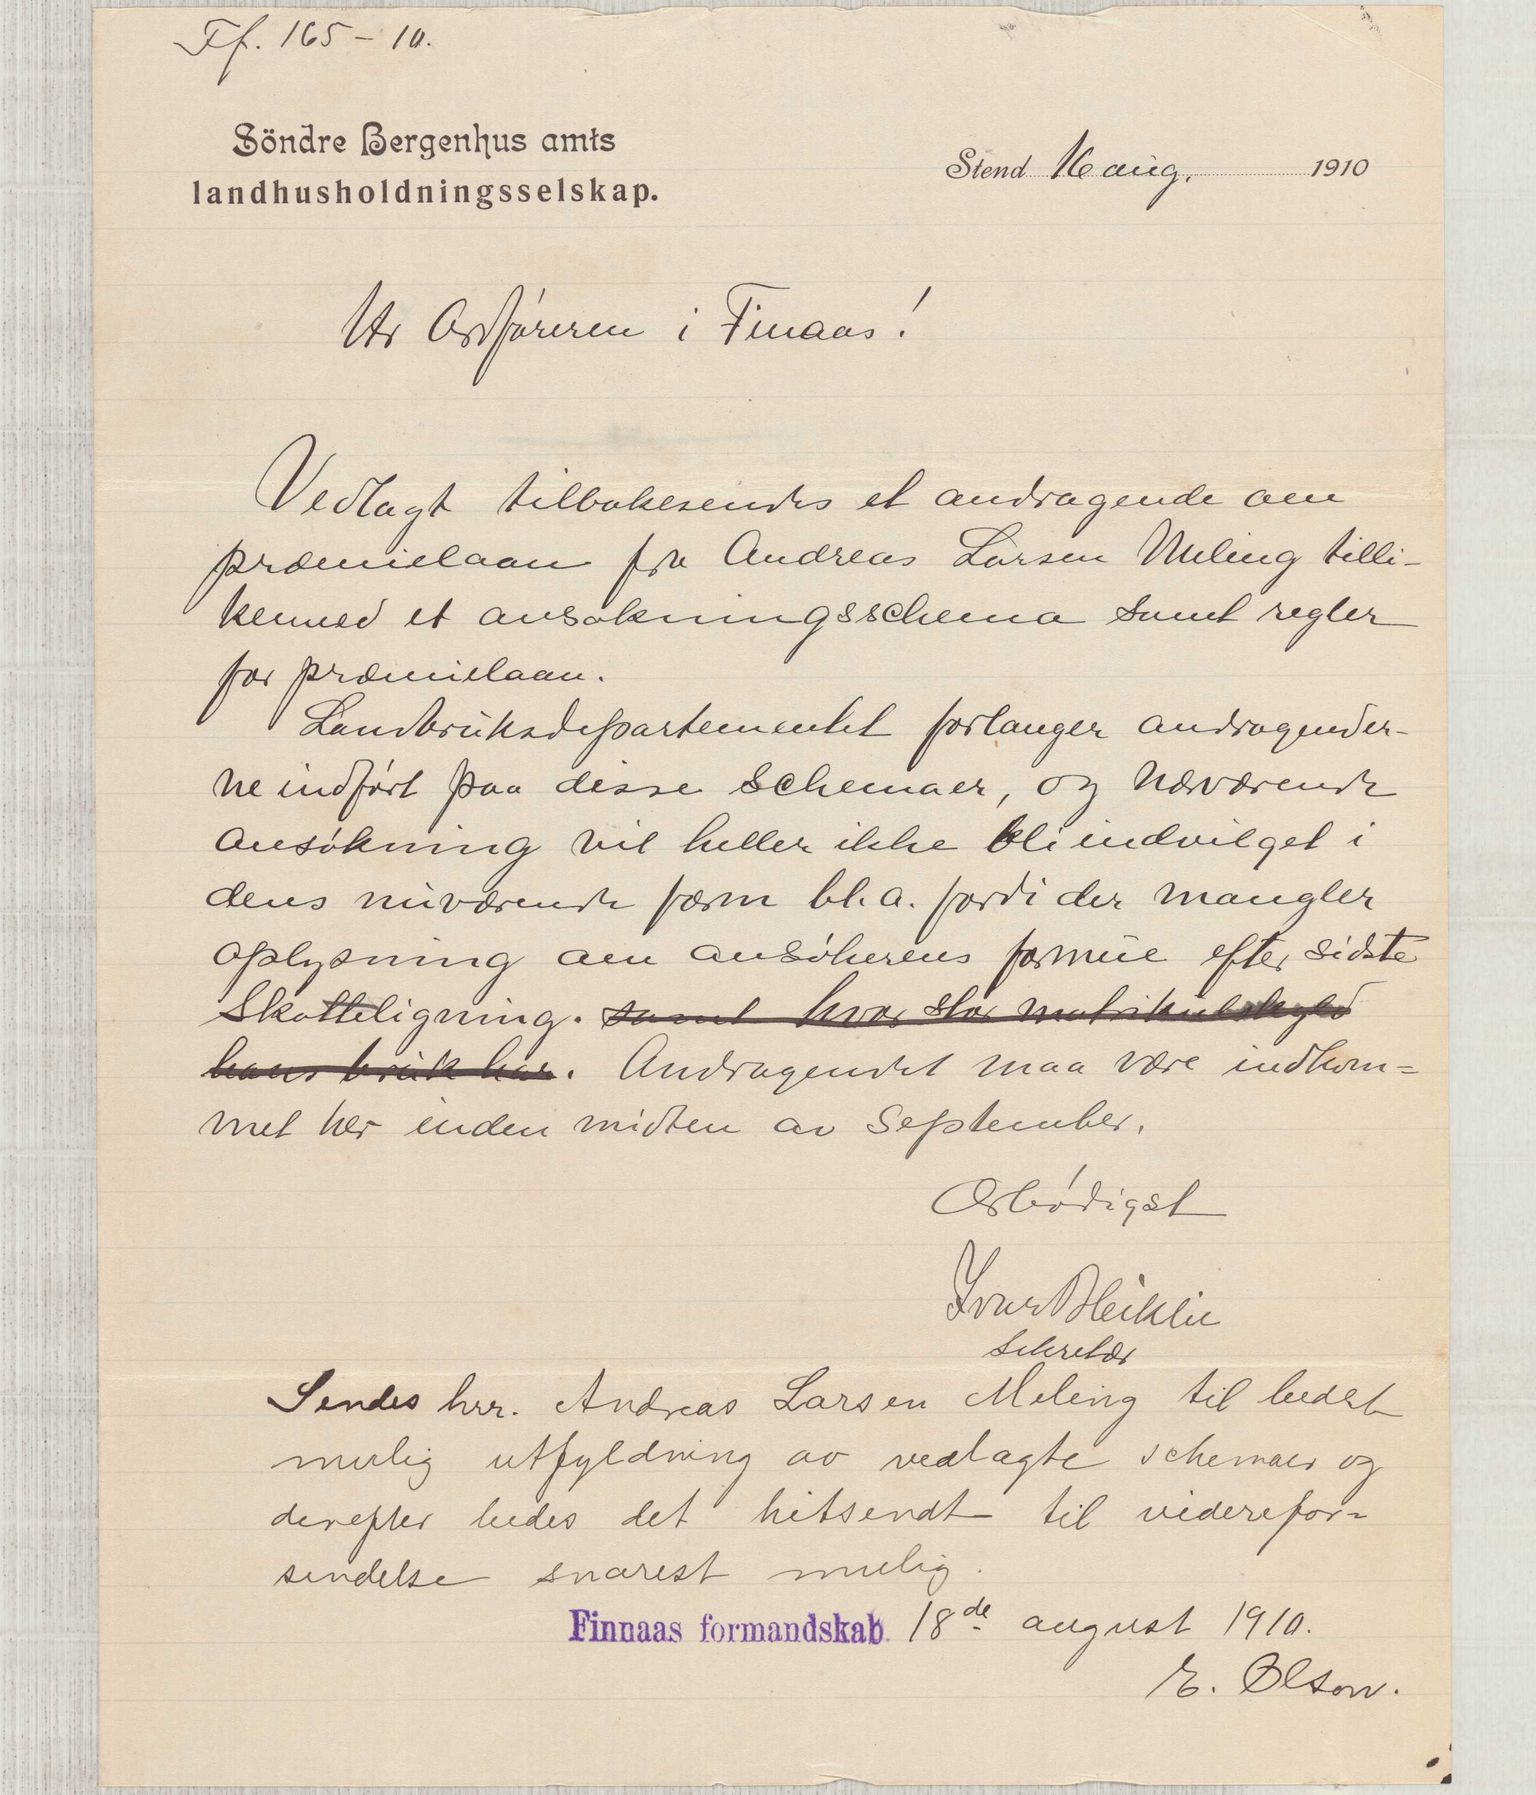 Ff. 165 - 10.
Söndre Bergenhus amts
landhusholdningsselskap.
Stend 16 aug. 1910
Hr Ordføreren i Finaas!
Vedlagt tilbakesendes et andragende om
præmielaan fra Andreas Larsen Meling tilli-
kemed et ansøkningsschema samt regler
for præmielaan.
Landbruksdepartementet forlanger andragender-
ne indført paa disse schemaer, og nærværende
ansøkning vil heller ikke bli indvilget i
dens nuværende form bl.a. fordi der mangler
oplysning om ansøkerens formue efter sidste
Skatteligning. samt hvor stor matrikulskyld
hans bruk har. Andragendet maa være indkom=
met her inden midten av September.
Ærbødigst
Ivar Bleiklie
Sekretær
Sendes hrr. Andreas Larsen Meling til bedst
mulig utfyldning av vedlagte schemaer og
derefter bedes det hitsendt til viderefor=
sendelse snarest mulig.
Finnaas formandskab 18de august 1910.
E. Olson.